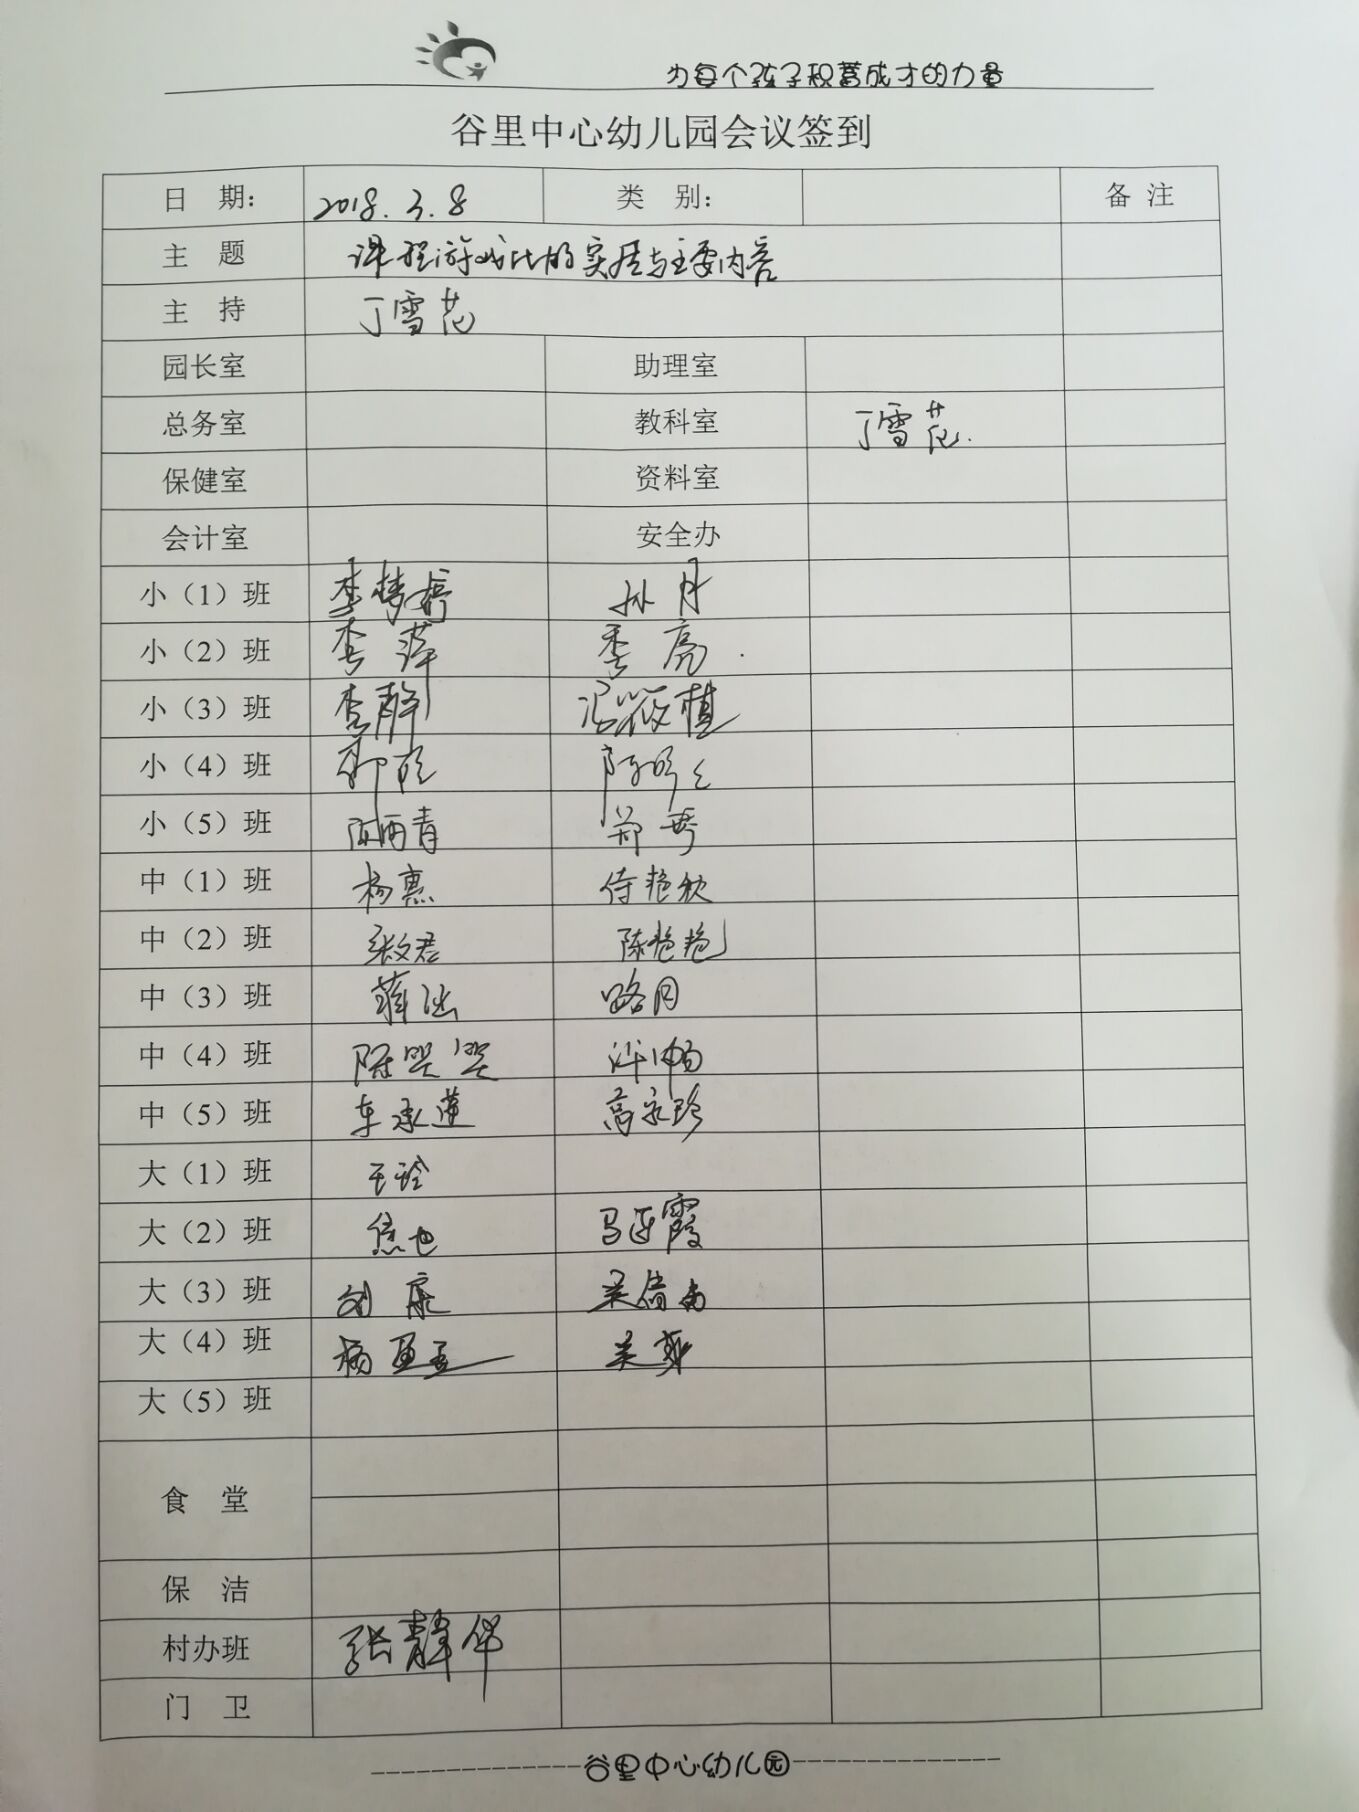 为每个孩子积蓄成才的力量
谷里中心幼儿园会议签到
日 期: 2018.3.8 类 别: 备 注
主 题 课程游戏化的实质与主要内容
主 持 丁雪花
园长室 助理室
总务室 教科室 丁雪花.
保健室 资料室
会计室 安全办
小（1）班 李梦婷 孙月
小（2）班 李萍 季亮.
小（3）班 李静
小（4）班
小（5）班 陈雨青 郑琴
中（1）班 杨惠 侍艳秋
中（2）班 张文君 陈艳艳
中（3）班 薛涵 路月
中（4）班 陈哭哭
中（5）班 车承莲 高家珍
大（1）班 王玲
大（2）班 焦也 马延霞
大（3）班 刘康 吴倩南
大（4）班 杨
大（5）班
食 堂
保 洁
村办班 张静华
门 卫
谷里中心幼儿园